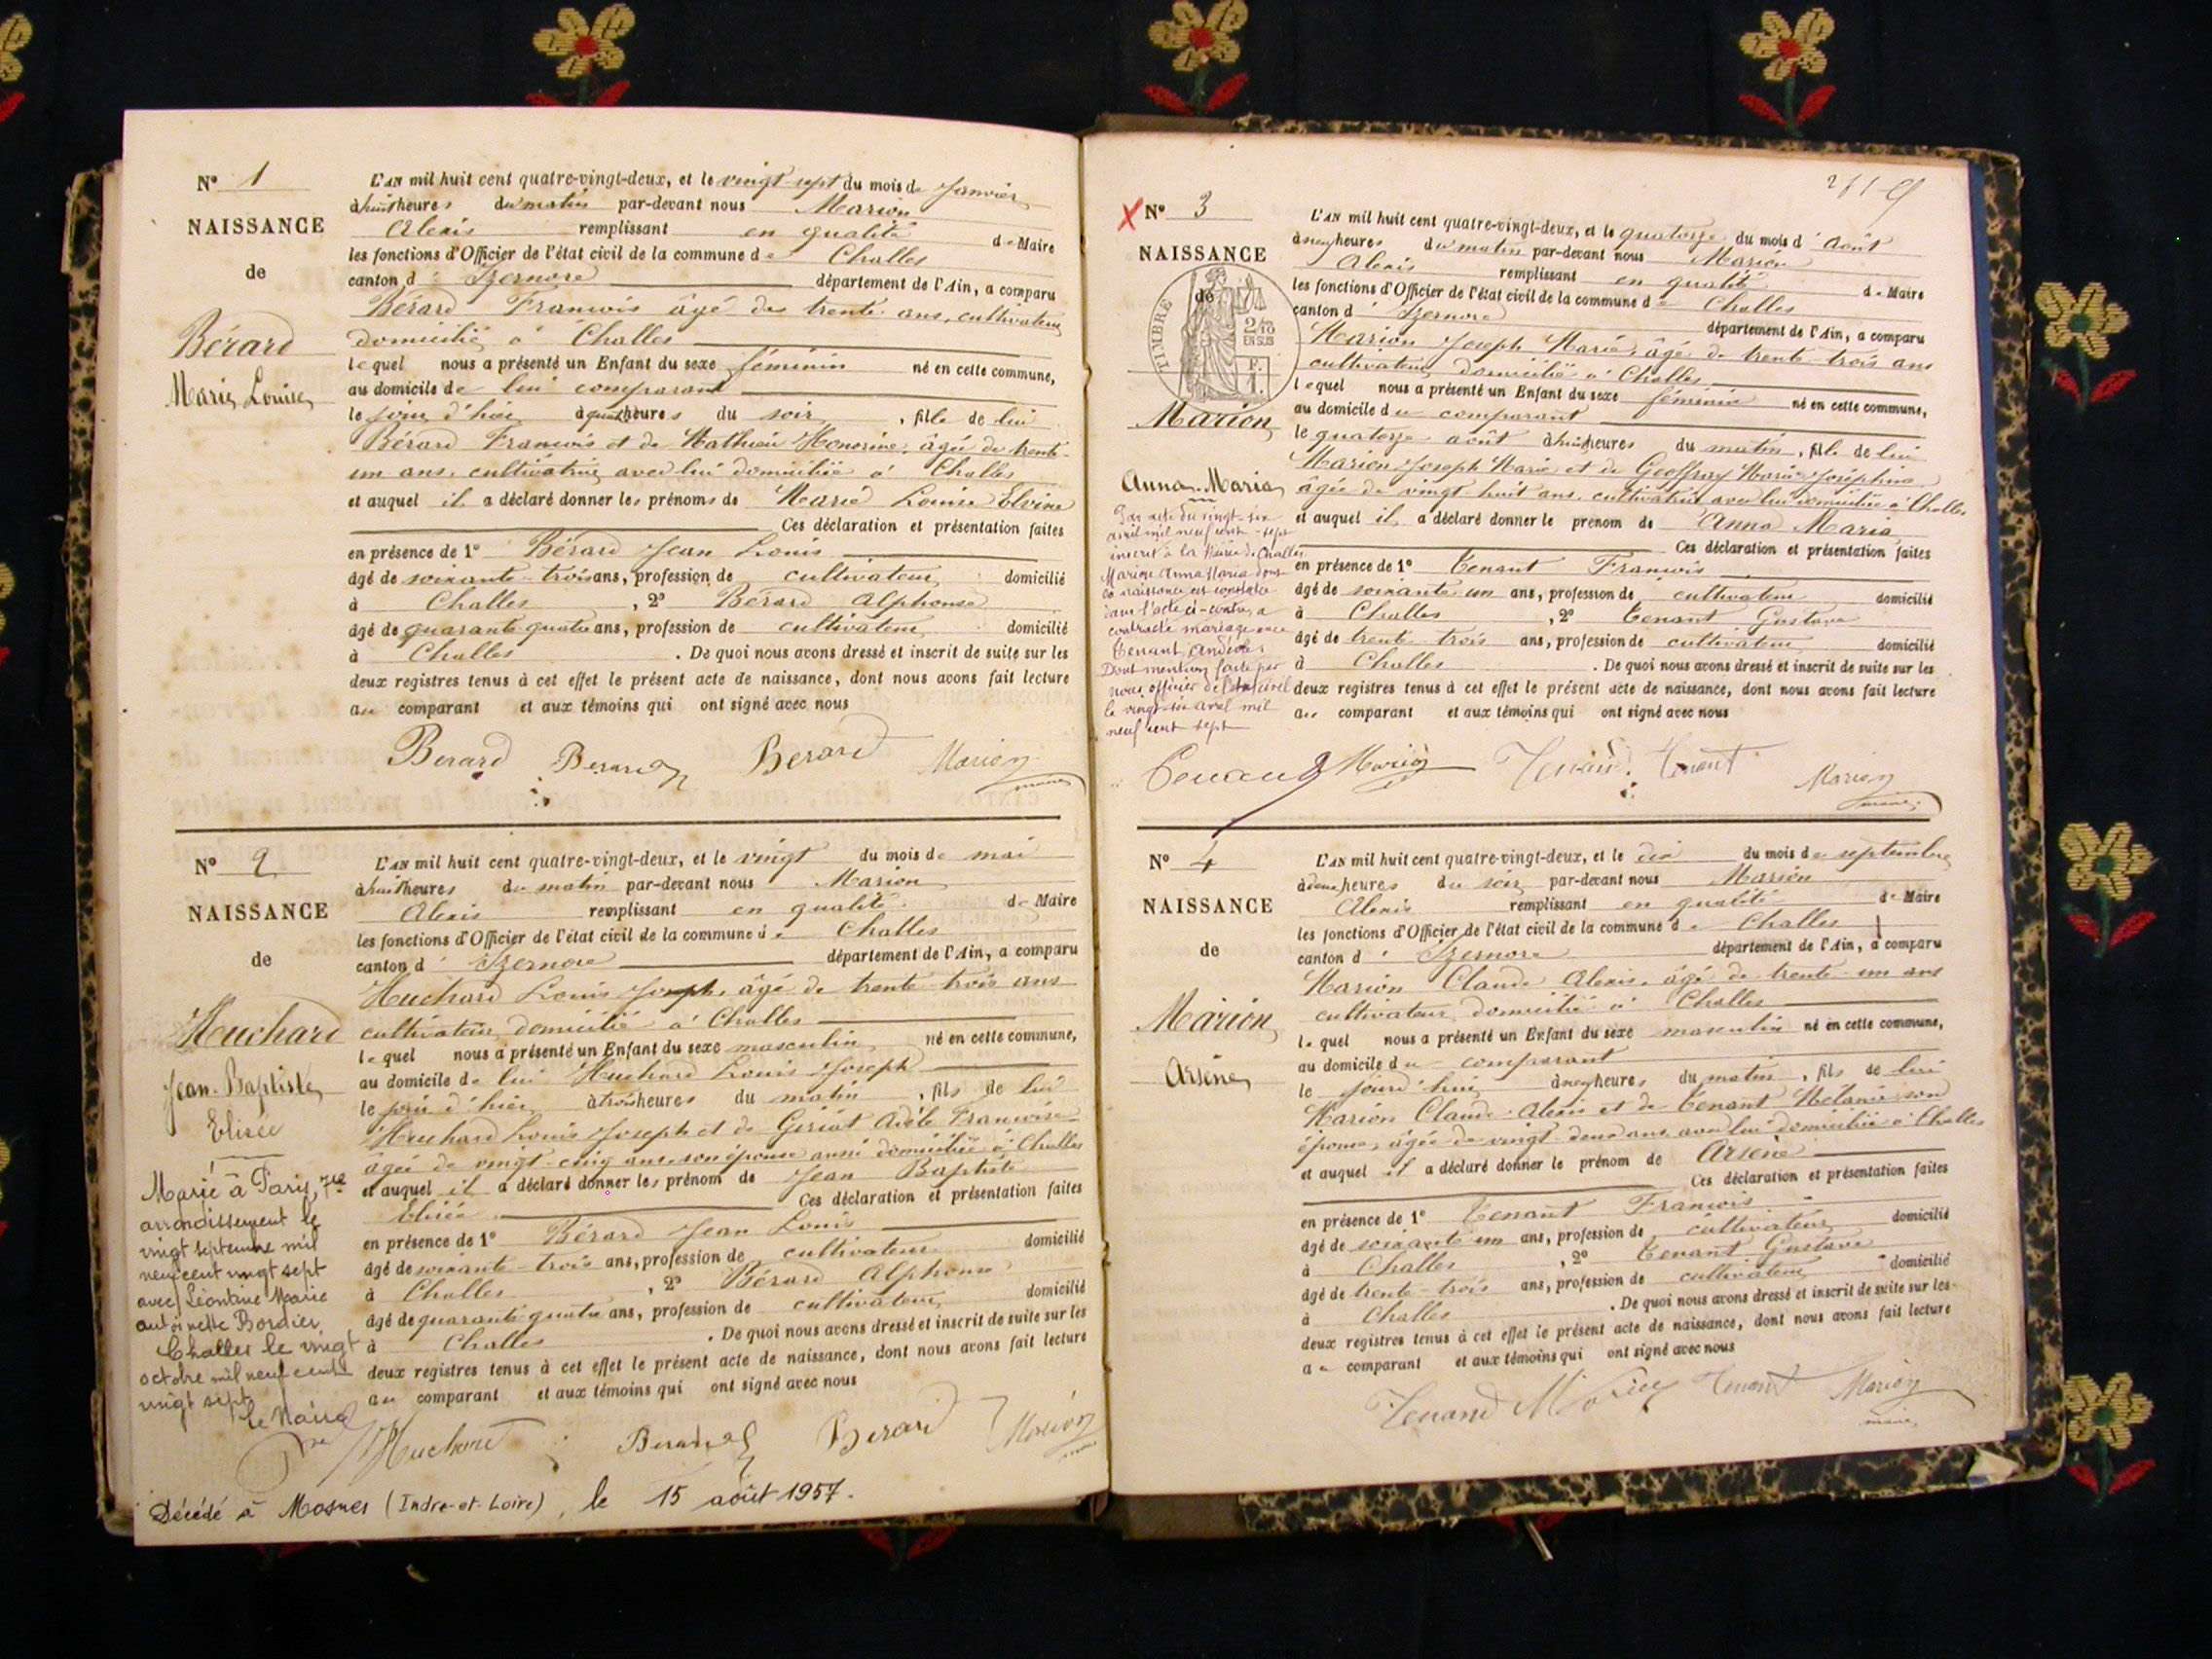 N° 1
NAISSANCE
de
Bérard
Marie Louise
L'AN mil huit cent quatre-vingt-deux, et le vingt-sept du mois de Janvier
à huit heures du matin par-devant nous Marion
Alexis remplissant en qualité de Maire
les fonctions d'Officier de l'état civil de la commune de Challes
canton d' Izernore département de l'Ain, a comparu
Bérard Francois âgé de trente ans, cultivateur
domicilié à Challes
lequel nous a présenté un Enfant du sexe féminin né en cette commune,
au domicile de lui comparant
le jour d'hier à heures du soir, fille de lui
Bérard Francois et de Mathieu Honorine, âgée de trente-
un ans, cultivatrice avec lui domiciliée à Challes
et auquel il a déclaré donner les prénoms de Marie Louise Elvine
Ces déclaration et présentation faites
en présence de 1° Bérard Jean Louis
âgé de soixante-trois ans, profession de cultivateur domicilié
à Challes, 2° Bérard Alphonse
âgé de quarante quatre ans, profession de cultivateur domicilié
à Challes. De quoi nous avons dressé et inscrit de suite sur les
deux registres tenus à cet effet le présent acte de naissance, dont nous avons fait lecture
au comparant et aux témoins qui ont signé avec nous
Berard Berard Berard Marion
maire
N° 2
NAISSANCE
de
Huchard
Jean-Baptiste
Elisée
Marié à Paris, 7me
arrondissement le
vingt septembre mil
neuf cent vingt sept
avec Léontine Marie
Antoinette Bordier
Challes le vingt
octobre mil neuf cent
vingt sept
Le Maire
L'AN mil huit cent quatre-vingt-deux, et le vingt du mois de mai
à huit heures du matin par-devant nous Marion
Alexis remplissant en qualité de Maire
les fonctions d'Officier de l'état civil de la commune de Challes
canton d' Izernore département de l'Ain, a comparu
Huchard Louis Joseph, âgé de trente trois ans
cultivateur domicilié à Challes
lequel nous a présenté un Enfant du sexe masculin né en cette commune,
au domicile de lui Huchard Louis Joseph
le jour d'hier à trois heures du matin, fils de lui
Huchard Louis Joseph et de Giriat Adèle Francoise
âgée de vingt-cinq ans son épouse aussi domiciliée à Challes
et auquel il a déclaré donner les prénom de Jean Baptiste
Elisée Ces déclaration et présentation faites
en présence de 1° Bérard Jean Louis
âgé de soixante-trois ans, profession de cultivateur domicilié
à Challes, 2° Bérard Alphonse
âgé de quarante quatre ans, profession de cultivateur domicilié
à Challes. De quoi nous avons dressé et inscrit de suite sur les
deux registres tenus à cet effet le présent acte de naissance, dont nous avons fait lecture
au comparant et aux témoins qui ont signé avec nous
Huchard Berard Berard Marion
Décédé à Mosnes (Indre-et-Loire), le 15 août 1957.
X N° 3
NAISSANCE
de
TIMBRE
2/10
EN SUS
F.
1.
Marion
Anna-Maria
Par acte du vingt-six
avril mil neuf cent-sept
inscrit à la Mairie de Challes
Marion Anna Maria dont
la naissance est constatée
dans l'acte ci-contre, a
contracté mariage avec
Tenant
Dont mention faite par
nous officier de l'état civil
le vingt-six avril mil
neuf cent sept
L'AN mil huit cent quatre-vingt-deux, et le quatorze du mois d'Août
à neuf heures du matin par-devant nous Marion
Alexis remplissant en qualité de Maire
les fonctions d'Officier de l'état civil de la commune de Challes
canton d' Izernore département de l'Ain, a comparu
Marion Joseph Marie, âgé de trente-trois ans
cultivateur domicilié à Challes
lequel nous a présenté un Enfant du sexe féminin né en cette commune,
au domicile du comparant
le quatorze août à huit heures du matin, fille de lui
Marion Joseph Marie et de Geoffray Marie Joséphine
âgée de vingt huit ans, cultivatrice avec lui domiciliée à Challes
et auquel il a déclaré donner le prénom de Anna Maria
Ces déclaration et présentation faites
en présence de 1° Tenant Francois
âgé de soixante un ans, profession de cultivateur domicilié
à Challes, 2° Tenant Gustave
âgé de trente-trois ans, profession de cultivateur domicilié
à Challes. De quoi nous avons dressé et inscrit de suite sur les
deux registres tenus à cet effet le présent acte de naissance, dont nous avons fait lecture
au comparant et aux témoins qui ont signé avec nous
Tenand Marion Tenant Marion
maire
N° 4
NAISSANCE
de
Marion
Arsène
L'AN mil huit cent quatre-vingt-deux, et le dix du mois de septembre
à deux heures du soir par-devant nous Marion
Alexis remplissant en qualité de Maire
les fonctions d'Officier de l'état civil de la commune de Challes
canton d' Izernore département de l'Ain, a comparu
Marion Claude Alexis, âgé de trente-un ans
cultivateur domicilié à Challes
lequel nous a présenté un Enfant du sexe masculin né en cette commune,
au domicile du comparant
le jourd'hui à neuf heures du matin, fils de lui
Marion Claude Alexis et de Tenant Mélanie son
épouse, âgée de vingt-deux ans avec lui domiciliée à Challes
et auquel il a déclaré donner le prénom de Arsène
Ces déclaration et présentation faites
en présence de 1° Tenant Francois
âgé de soixante un ans, profession de cultivateur domicilié
à Challes, 2° Tenant Gustave
âgé de trente-trois ans, profession de cultivateur domicilié
à Challes. De quoi nous avons dressé et inscrit de suite sur les
deux registres tenus à cet effet le présent acte de naissance, dont nous avons fait lecture
au comparant et aux témoins qui ont signé avec nous
Tenand Marion Tenant Marion
maire